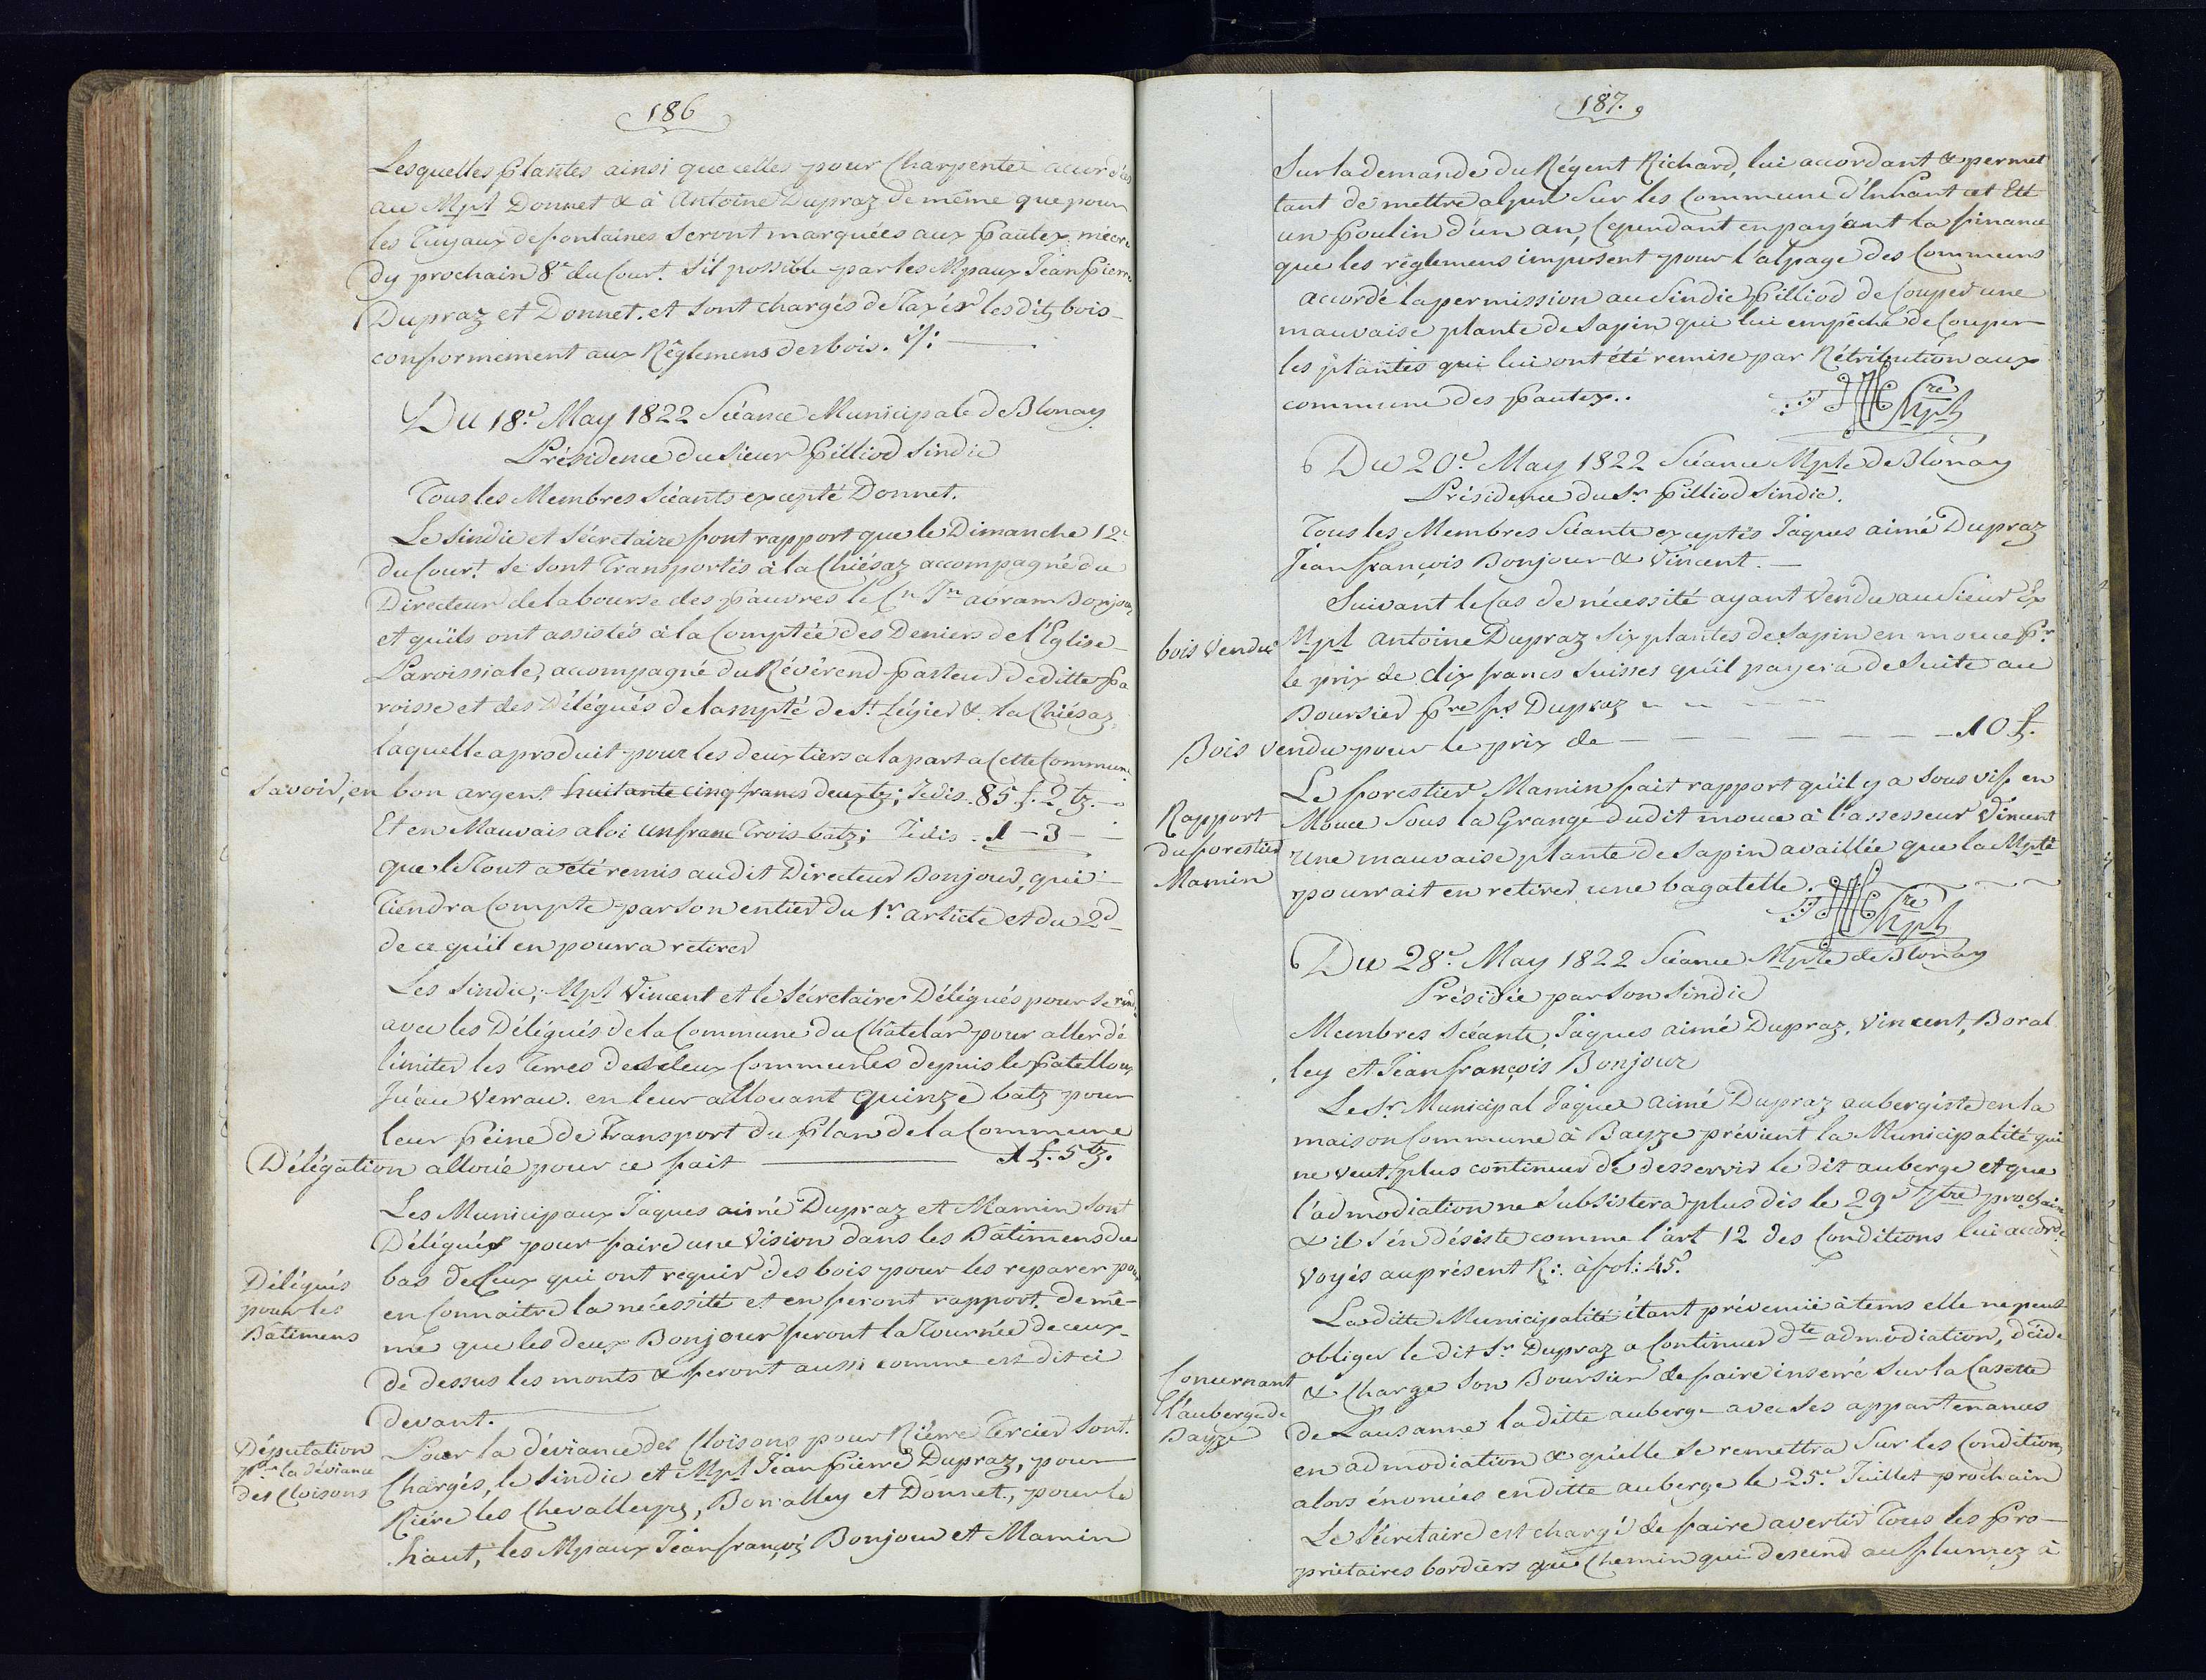 186
Lesquelles plantes ainsi que celles pour Charpente accordées
au Mpl Donnet & à Antoine Dupraz de même que pour
les Tuyaux de fontaines seront marquées aux Pautex mecre
dy prochain 8e du Court. s'il possible par les Mpaux Jean Pierre
Dupraz et Donnet. et sont chargés de Taxér les ditz bois
conformement aux Réglemens des bois.
Du 18e May 1822 Séance Municipale de Blonay
Présidence du Sieur Pilliod Sindic
Tous les Membres Séants excepté Donnet.
Le Sindic et Sécretaire font rapport que le Dimanche 12e
du Court. se sont Transportés à la Chiésaz accompagné du
Directeur de la bourse des pauvres le Cn Jn abram Bonjour
et qu'ils ont assistés à la Comptée des Deniers de l'Eglise
Paroissiale, accompagné du Révérend Pasteur de ditte Pa
roisse et des Délégués de la mpté de St. Légier & la Chiésaz,
laquelle a produit pour les deux tiers a la part a Cette Commune
Savoir, en bon argent huitante cinq francs deux tz; Jcdis. 85 f. 2 tz.
Et en Mauvais aloi un franc Trois batz; Jcdis. 1 - 3 -
que le Tout a été remis audit Directeur Bonjour, qui
Tiendra Compte par son entier du 1r article et du 2d
de ce qu'il en pourra retirer
Les Sindic, Mpl Vincent et le Sécretaire Délégués pour se rend.
avec les Délégués de la Commune du Châtelar pour aller dé
limiter les Terres des deux Communes depuis le
Ju'au Verrau. en leur allouant quinze batz pour
leur Peine de Transport du Plan de la Commune
Délégation allouée pour ce fait 1 f. 5 tz.
Les Municipaux Jaques aimé Dupraz et Mamin sont
Délégués pour faire une Vision dans les Bâtimens du
bas de Ceux qui ont requir des bois pour les reparer pour
en Connaitre la nécéssité et en feront rapport. de mê-
me que les deux Bonjour feront la Tournée de ceux
de dessus les monts & feront aussi comme est dit ci
devant.
Délégués
pour les
Bâtimens
Députation
pr. la déviance
des Cloisons
Pour la déviance des Cloisons pour Riére Tercier sont
Chargés, le Sindic et Mpl Jean Pierre Dupraz, pour
Riére les Chevalleyrs, Bonalley et Donnet, pour le
haut, les Mpaux Jean françois Bonjour et Mamin
187.
Sur la demande du Régent Richard, lui accordant & permet
tant de mettre alper sur les Commune d'Enhaut cet Eté
un Poulin d'un an, Cependant en payant la finance
que les réglemens imposent pour l'alpage des Communs
accordé la permission au Sindic Pilliod de Couper une
mauvaise plante de Sapin qui lui empêche de Couper
les plantes qui lui ont été remise par Rétribution aux
commune des Pautex..
Sre
Mpl
Du 20e May 1822 Séance Mple de Blonay
Présidence du Sr. Pilliod Sindic.
Tous les Membres Séants exceptés Jaques aimé Dupraz
Jean françois Bonjour & Vincent.
Suivant le Cas de nécessité ayant Vendu au Sieur Ex
bois Vendu Mpl Antoine Dupraz six plantes de Sapin en mouce Pr.
le prix de dix francs Suisses qu'il payera de Suite au
Boursier Pre fs Dupraz
Bois vendu pour le prix de 10 f.
Le forestier Mamin fait rapport qu'il y a sous visp en
Mouce Sous la Grange du dit mouce à l'assesseur Vincent
Une mauvaise plante de Sapin availlée que la Mpté
pourrait en retirer une bagatelle.
Rapport
du forestier
Mamin
Sre
Mpl
Du 28e May 1822 Séance Mple de Blonay
Présidée par son Sindic
Membres Séants, Jaques aimé Dupraz, Vincent, Boral
ley et Jean françois Bonjour
Le Sr. Municipal Jaques aimé Dupraz aubergiste en la
maison Commune à Bayze prévient la Municipalité qui
ne veut plus continuer de desservir le dit auberge et que
l'admodiation ne Subsistera plus dis le 29e 7bre prochain
& il s'en désiste comme l'art 12 des Conditions lui accorde
Voyés au présent R: à fol: 45.
La ditte Municipalité étant prévenüe à tems elle ne peut
obliger le dit Sr. Dupraz a Continuer dte admodiation, décide
& Charge son Boursier de faire inserré Sur la Gasette
de Lausanne la ditte auberge avec ses appartenances
en admodiation & qu'elle se remettra Sur les Conditions
alors énoncées en ditte auberge le 25e Juillet prochain
Concernant
l'auberge de
Bayze
Le Sécretaire est chargé de faire avertir Tous les Pro-
priétaires bordiers que Chemin qui descend au plumez à